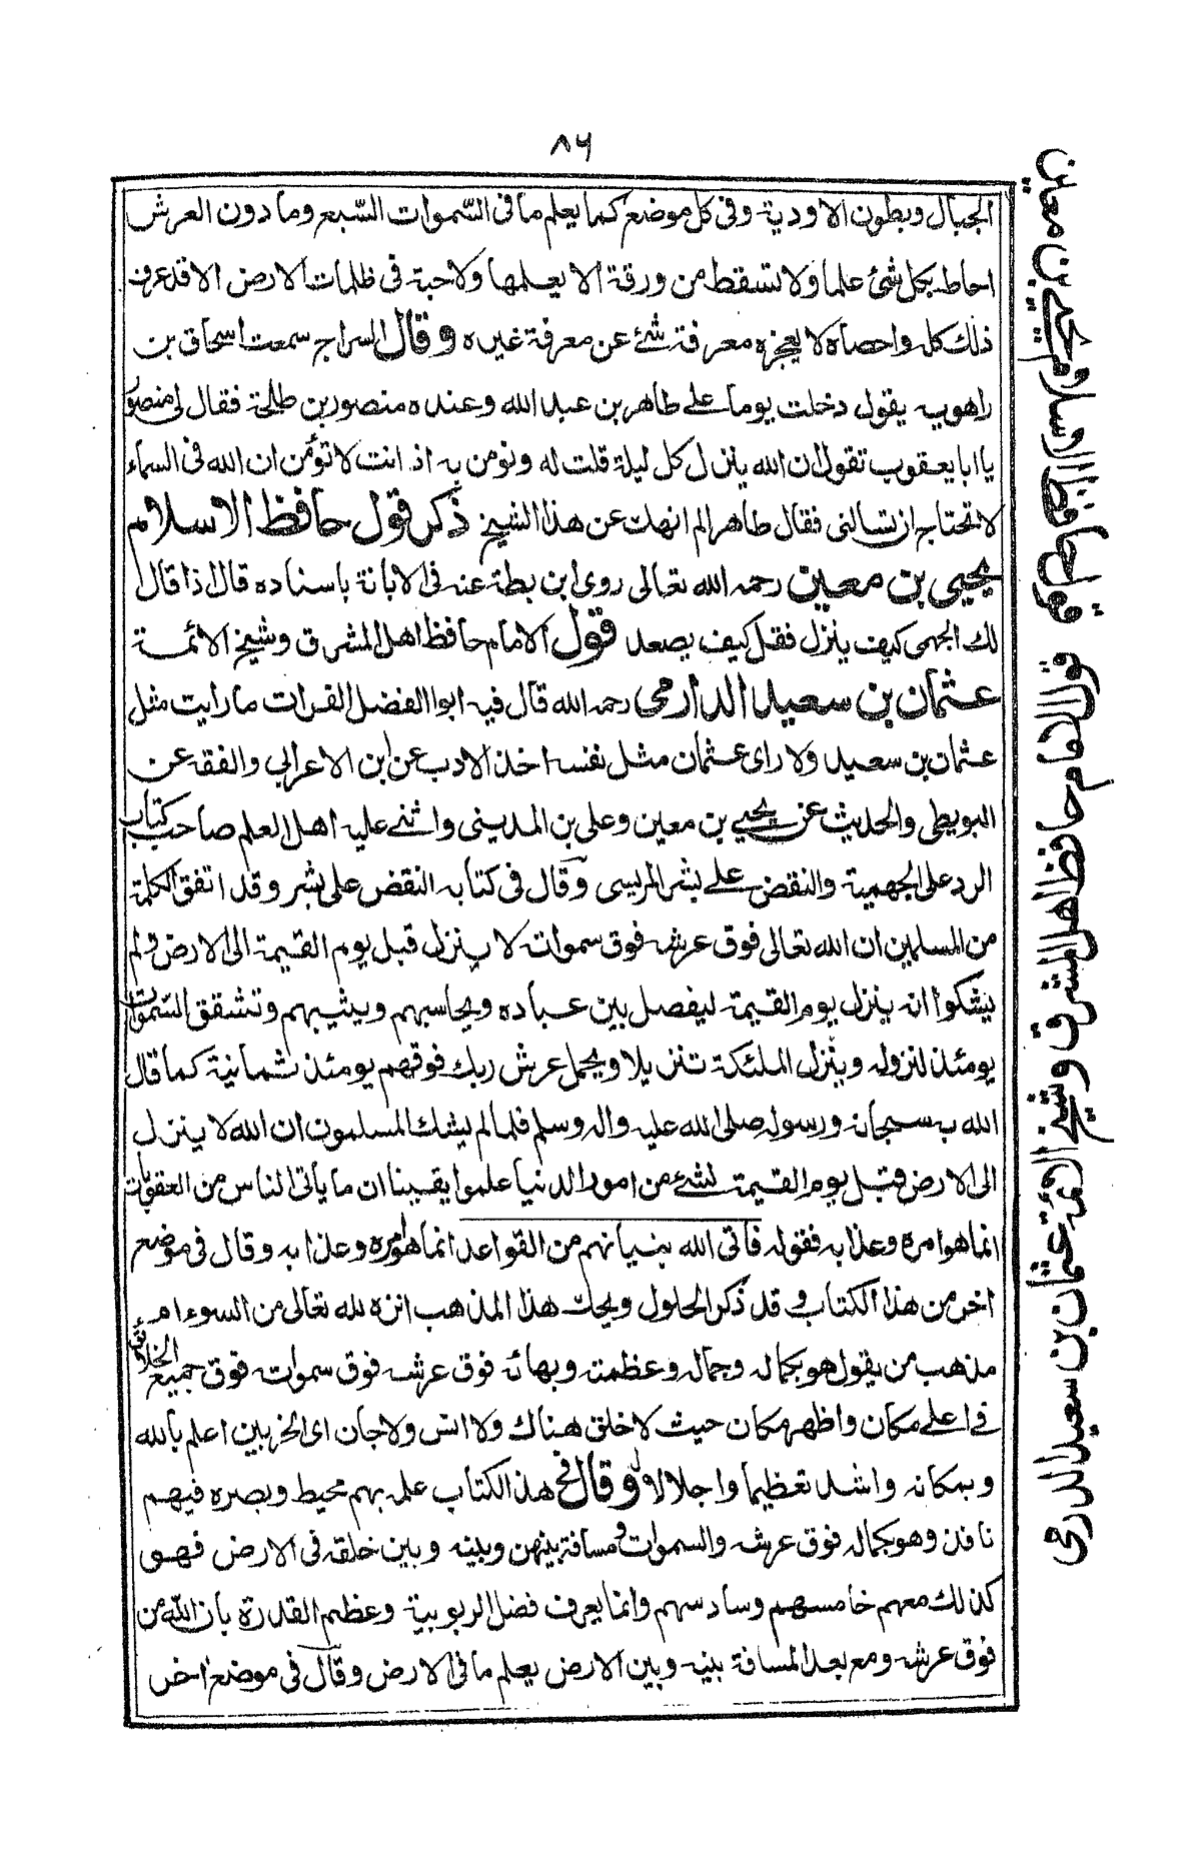 ٨٦
الجبال وبطون الاودية وفى كل موضع كما يعلم ما فى السّموات السّبع وما دون العرش
احاط بكل شئ علما ولا تسقط من ورقة الا يعلمها ولا حبة فى ظلمات الارض الا قد عرف
ذلك كله واحصاه لا يعجزه معرفة شئ عن معرفة غيره وقال السراج سمعت اسحاق بن
راهويه يقول دخلت يوما على طاهر بن عبد الله وعنده منصور بن طلحة فقال لى منصور
يا ابا يعقوب تقول ان الله ينزل كل ليلة قلت له ونؤمن به اذ انت لا تؤمن ان الله فى السماء
لا تحتاج ان تسالنى فقال طاهر الم انهك عن هذا الشيخ ذكر قول حافظ الاسلام
يحيى بن معين رحمه الله تعالى روى ابن بطة عنه فى الابانة باسناده قال اذا قال
لك الجهمى كيف ينزل فقل كيف يصعد قول الامام حافظ اهل المشرق وشيخ الائمة
عثمان بن سعيد الدارمى رحمه الله قال فيه ابوا الفضل الفرات ما رايت مثل
عثمان بن سعيد ولا راى عثمان مثل نفسه اخذ الادب عن ابن الاعرابي والفقه عن
البويطى والحديث عن يحيى بن معين وعلى بن المدينى واثنى عليه اهل العلم صاحب كتاب
الرد على الجهمية والنقض على بشر المريسى وقال فى كتابه النقض على بشر وقد اتفق الكلمة
من المسلمين ان الله تعالى فوق عرشه فوق سمواته لا ينزل قبل يوم القيمة الى الارض ولم
يشكوا انه ينزل يوم القيمة ليفصل بين عباده ويحاسبهم ويثيبهم وتشقق السّموات
يومئذ لنزوله وينزل الملئكة تنزيلا ويحمل عرش ربك فوقهم يومئذ ثمانية كما قال
الله سبحانه ورسوله صلى الله عليه واله وسلم فلما لم يشك المسلمون ان الله لا ينزل
الى الارض قبل يوم القيمة لشئ من امور الدنيا علموا يقينا ان ما ياتى الناس من العقوبات
انما هوامره وعذابه فقوله فاتى الله بنيانهم من القواعد انما هوامره وعذابه وقال فى موضع
اخر من هذا الكتاب وقد ذكر الحلول ويحك هذا المذهب انزه لله تعالى من السوء ام
مذهب من يقول هو بكماله وجماله وعظمته وبهائه فوق عرشه فوق سمواته فوق جميع الخلائق
فى اعلى مكان واظهر مكان حيث لا خلق هناك ولا انس ولا جان اى الحزبين اعلم بالله
وبمكانه واشد تعظيما واجلالا له وقال فى هذا الكتاب علمه بهم محيط وبصره فيهم
نافذ وهو بكماله فوق عرشه والسموات ومسافة بينهن وبينه وبين خلقه فى الارض فهو
كذلك معهم خامسهم وسادسهم وانما يعرف فضل الربوبية وعظم القدرة بان الله من
فوق عرشه ومع بعد المسافة بينه وبين الارض يعلم ما فى الارض وقال فى موضع اخر
قول حافظ الاسلام يحيى بن معين
قول الامام حافظ اهل المشرق وشيخ الائمة عثمان بن سعيد الدارمى